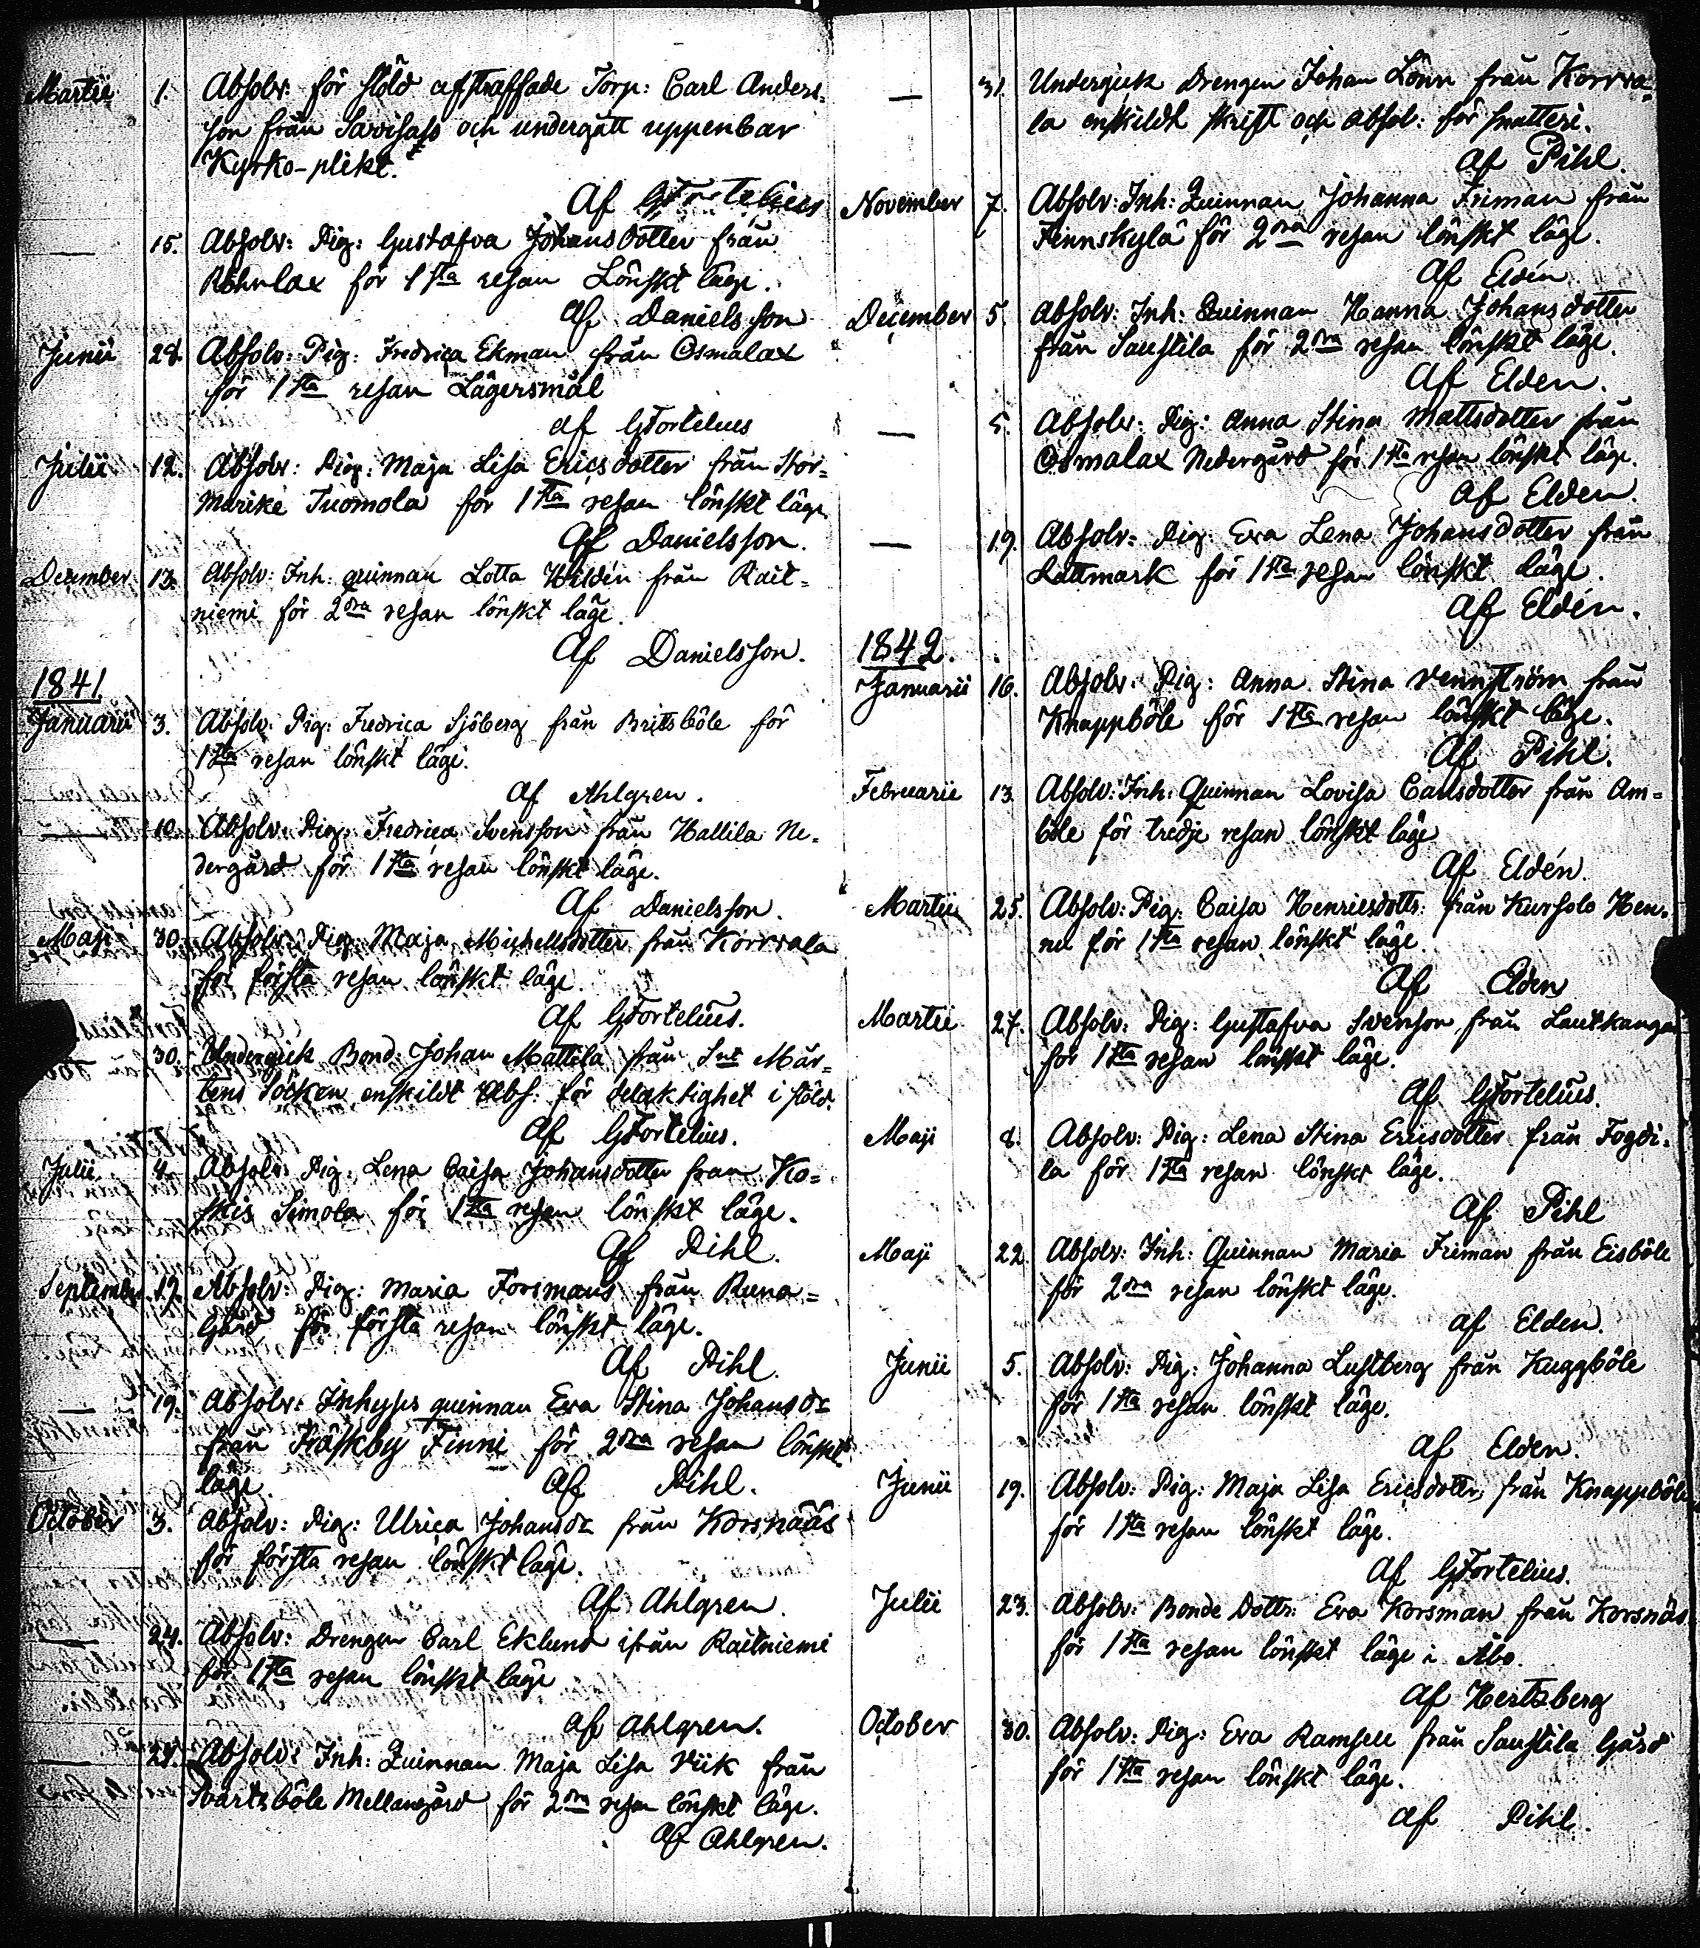 Martii 1. Absolv: för stöld afstraffade Torp: Carl Anders-
son från Savisaso och undergått uppenbar
Kyrko-plikt.
Af GFortelius
— 15. Absolv: Pig: Gustafva Johansdotter från
Röhnlax för 1sta resan Lönskt läge.
Af Danielsson
Junii 28. Absolv: Pig: Fredrica Ekman från Osmalax
för 1sta resan Lägersmål
af GFortelius
Julii 12. Absolv: Pig: Maja Lisa Ericsdotter från Stor-
Marike Tuomola för 1sta resan lönskt läge
Af Danielsson.
December 13. Absolv: Inh: quinnan Lotta Hildén från Rait-
niemi för 2dra resan lönskt läge.
Af Danielsson.
1841.
Januarii 3. Absolv: Pig: Fredrica Sjöberg från Brittsböle för
1sta resan lönskt läge.
Af Ahlgren.
— 10. Absolv: Pig: Fredrica Svensson från Hallila Ne-
dergård för 1sta resan lönskt läge.
Af Danielsson.
Maji 30. Absolv: Pig: Maja Michelsdotter från Korrvala
för första resan lönskt läge.
Af GFortelius.
30. Undergick Bond: Johan Mattila från Snt Mår-
tens Socken enskildt Abs: för delaktighet i stöld.
Af GFortelius.
Julii 4. Absolv: Pig: Lena Caisa Johansdotter från Ko-
skis Simola för 1sta resan lönskt läge.
Af Pihl.
September 12. Absolv: Pig: Maria Forsmans från Runa-
Gård för första resan lönskt läge.
Af Pihl.
— 19. Absolv: Inhyses quinnan Eva Stina Johansdr
från Träskby Finni för 2dra resan lönskt
läge. Af Pihl.
October 3. Absolv: Pig: Ulrica Johansdr från Korsnääs
för första resan lönskt läge.
Af Ahlgren.
— 24. Absolv: Drengen Carl Eklund ifrån Raitniemi
för 1sta resan lönskt läge
af Ahlgren.
— Absolv: Inh: Quinnan Maja Lisa Viik från
Svartsböle Mellangård för 2dra resan lönskt läge.
af Ahlgren.
— 31. Undergick Drengen Johan Lönn från Korrva-
la enskildt skrift och absol: för snatteri.
Af Pihl.
November 7. Absolv: Inh: Quinnan Johanna Friman från
Finnskylä för 2dra resan lönskt läge.
Af Eldén
December 5. Absolv: Inh: Quinnan Hanna Johansdotter
från Saustila för 2dra resan lönskt läge.
Af Elden.
— 5. Absolv: Pig: Anna Stina Mattsdotter från
Osmalax Nedergård för 1sta resan lönskt läge.
Af Elden.
— 19. Absolv: Pig: Eva Lena Johansdotter från
Lettmark för 1sta resan lönskt läge.
Af Eldén.
1842.
Januarii 16. Absolv: Pig: Anna Stina Vennström från
Knappböle för 1sta resan lönskt läge.
Af Pihl.
Februarii 13. Absolv: Inh: Quinnan Lovisa Carlsdotter från Am-
böle för tredje resan lönskt läge
Af Eldén.
Martii 25. Absolv: Pig: Caisa Henricsdottr: från Kurholo Hen-
nu för 1sta resan lönskt läge.
Af Elden
Martii 27. Absolv: Pig: Gustafva Svenson från Lautkangas
för 1sta resan lönskt läge.
Af GFortelius.
Maji 8. Absolv: Pig: Lena Stina Ericsdotter från Fogdi-
la för 1sta resan lönskt läge.
Af Pihl
Maji 22. Absolv: Inh: Quinnan Maria Friman från Eisböle
för 2dra resan lönskt läge.
af Elden.
Junii 5. Absolv: Pig: Johanna Lustberg från Kuggböle
för 1sta resan lönskt läge.
af Elden.
Junii 19. Absolv: Pig: Maja Lisa Ericsdotter från Knappböle
för 1sta resan lönskt läge.
Af GFortelius.
Julii 23. Absolv: Bonde Dottr: Eva Korsman från Korsnäs
för 1sta resan lönskt läge i Åbo.
af Hertzberg
October 30. Absolv: Pig: Eva Ramsell från Saustila Gård
för 1sta resan lönskt läge.
af Pihl.